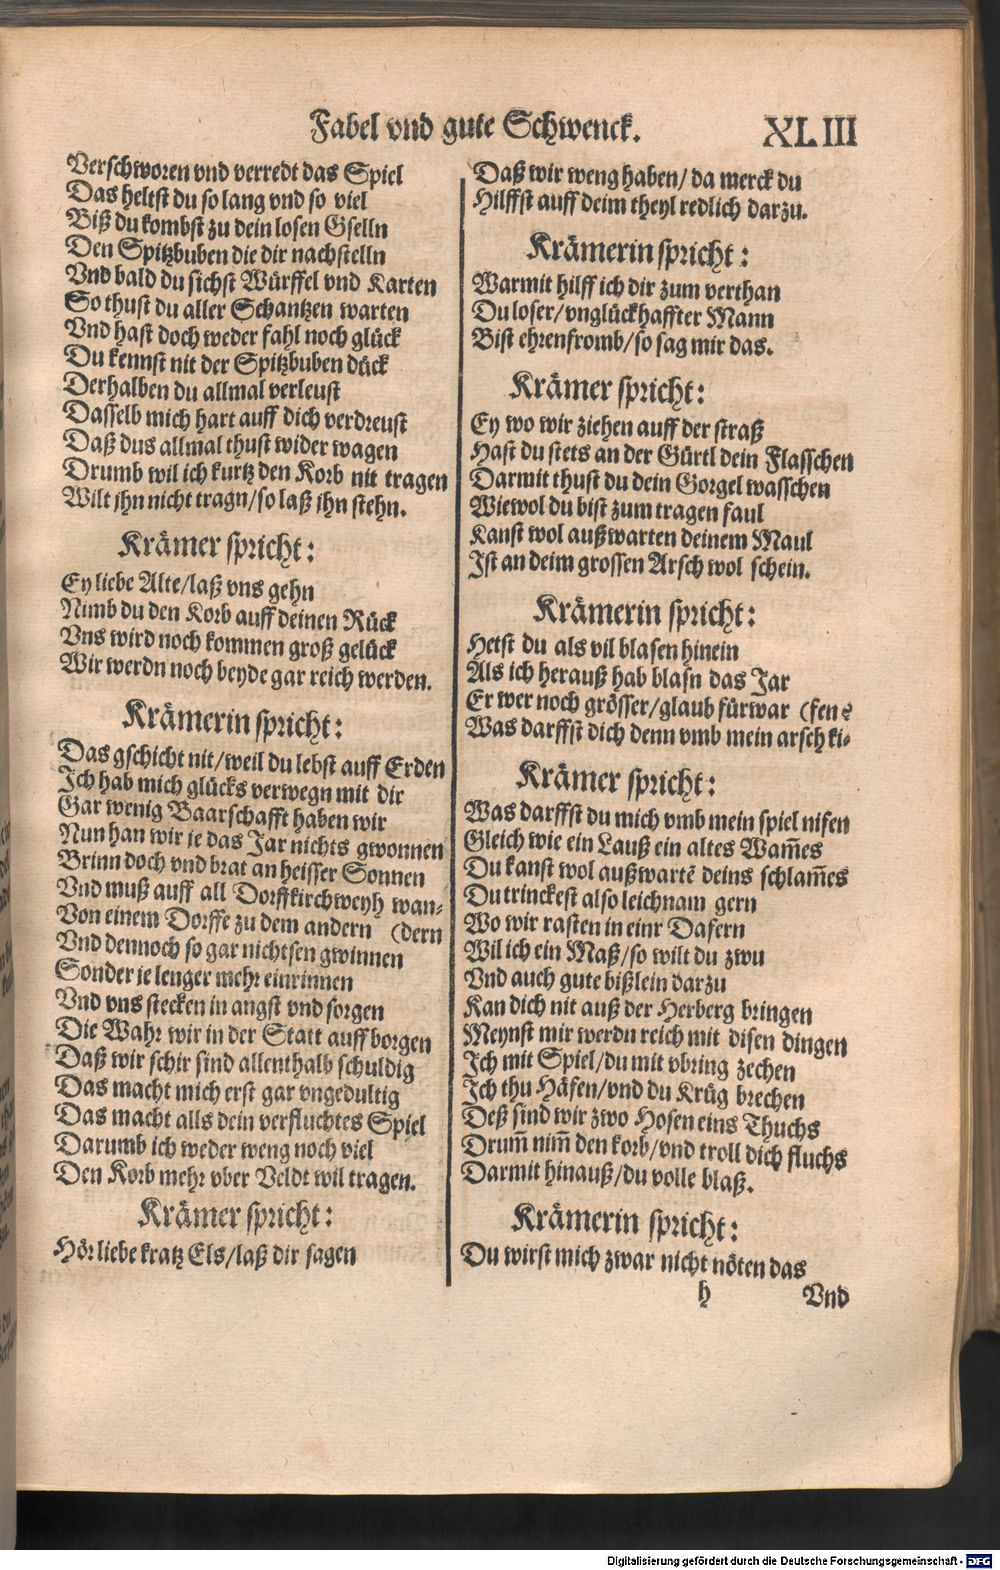 Fabel vnd gute Schwenck. XLIII
Verschworen vnd verredt das Spiel
Das heltst du so lang vnd so viel
Biß du kombst zu dein losen Gselln
Den Spitzbuben die dir nachstelln
Vnd bald du sichst Würffel vnd Karten
So thust du aller Schantzen warten
Vnd hast doch weder fahl noch glück
Du kennst nit der Spitzbuben dück
Derhalben du allmal verleust
Dasselb mich hart auff dich verdreust
Daß dus allmal thust wider wagen
Drumb wil ich kurtz den Korb nit tragen
Wilt jhn nicht tragn/so laß jhn stehn.
Krämer spricht:
Ey liebe Alte/laß vns gehn
Nimb du den Korb auff deinen Rück
Vns wird noch kommen groß gelück
Wir werdn noch beyde gar reich werden.
Krämerin spricht:
Das gschicht nit/weil du lebst auff Erden
Ich hab mich glücks verwegn mit dir
Gar wenig Baarschafft haben wir
Nun han wir je das Jar nichts gwonnen
Brinn doch vnd brat an heisser Sonnen
Vnd muß auff all Dorffkirchweyh wan-
Von einem Dorffe zu dem andern (dern
Vnd dennoch so gar nichtsen gwinnen
Sonder je lenger mehr einrinnen
Vnd vns stecken in angst vnd sorgen
Die Wahr wir in der Statt auff borgen
Daß wir schir sind allenthalb schuldig
Das macht mich erst gar vngedultig
Das macht alls dein verfluchtes Spiel
Darumb ich weder weng noch viel
Den Korb mehr vber Veldt wil tragen.
Krämer spricht:
Hör liebe kratz Els/laß dir sagen
Daß wir weng haben/da merck du
Hilffst auff deim theyl redlich darzu.
Krämerin spricht:
Warmit hilff ich dir zum verthan
Du loser/vnglückhaffter Mann
Bist ehrenfromb/so sag mir das.
Krämer spricht:
Ey wo wir ziehen auff der straß
Hast du stets an der Gürtl dein Flasschen
Darmit thust du dein Gorgel wasschen
Wiewol du bist zum tragen faul
Kanst wol außwarten deinem Maul
Ist an deim grossen Arsch wol schein.
Krämerin spricht:
Hetst du als vil blasen hinein
Als ich herauß hab blasn das Jar
Er wer noch grösser/glaub fürwar (fen?
Was darffst dich denn vmb mein arsch ki-
Krämer spricht:
Was darffst du mich vmb mein spiel nifen
Gleich wie ein Lauß ein altes Wam̃es
Du kanst wol außwartẽ deins schlam̃es
Du trinckest also leichnam gern
Wo wir rasten in einr Dafern
Wil ich ein Maß/so wilt du zwu
Vnd auch gute bißlein darzu
Kan dich nit auß der Herberg bringen
Meynst mir werdn reich mit disen dingen
Ich mit Spiel/du mit vbring zechen
Ich thu Häfen/vnd du Krüg brechen
Deß sind wir zwo Hosen eins Thuchs
Drum̃ nim̃ den korb/vnd troll dich fluchs
Darmit hinauß/du volle blaß.
Krämerin spricht:
Du wirst mich zwar nicht nöten das
h Vnd
Digitalisierung gefördert durch die Deutsche Forschungsgemeinschaft - DFG